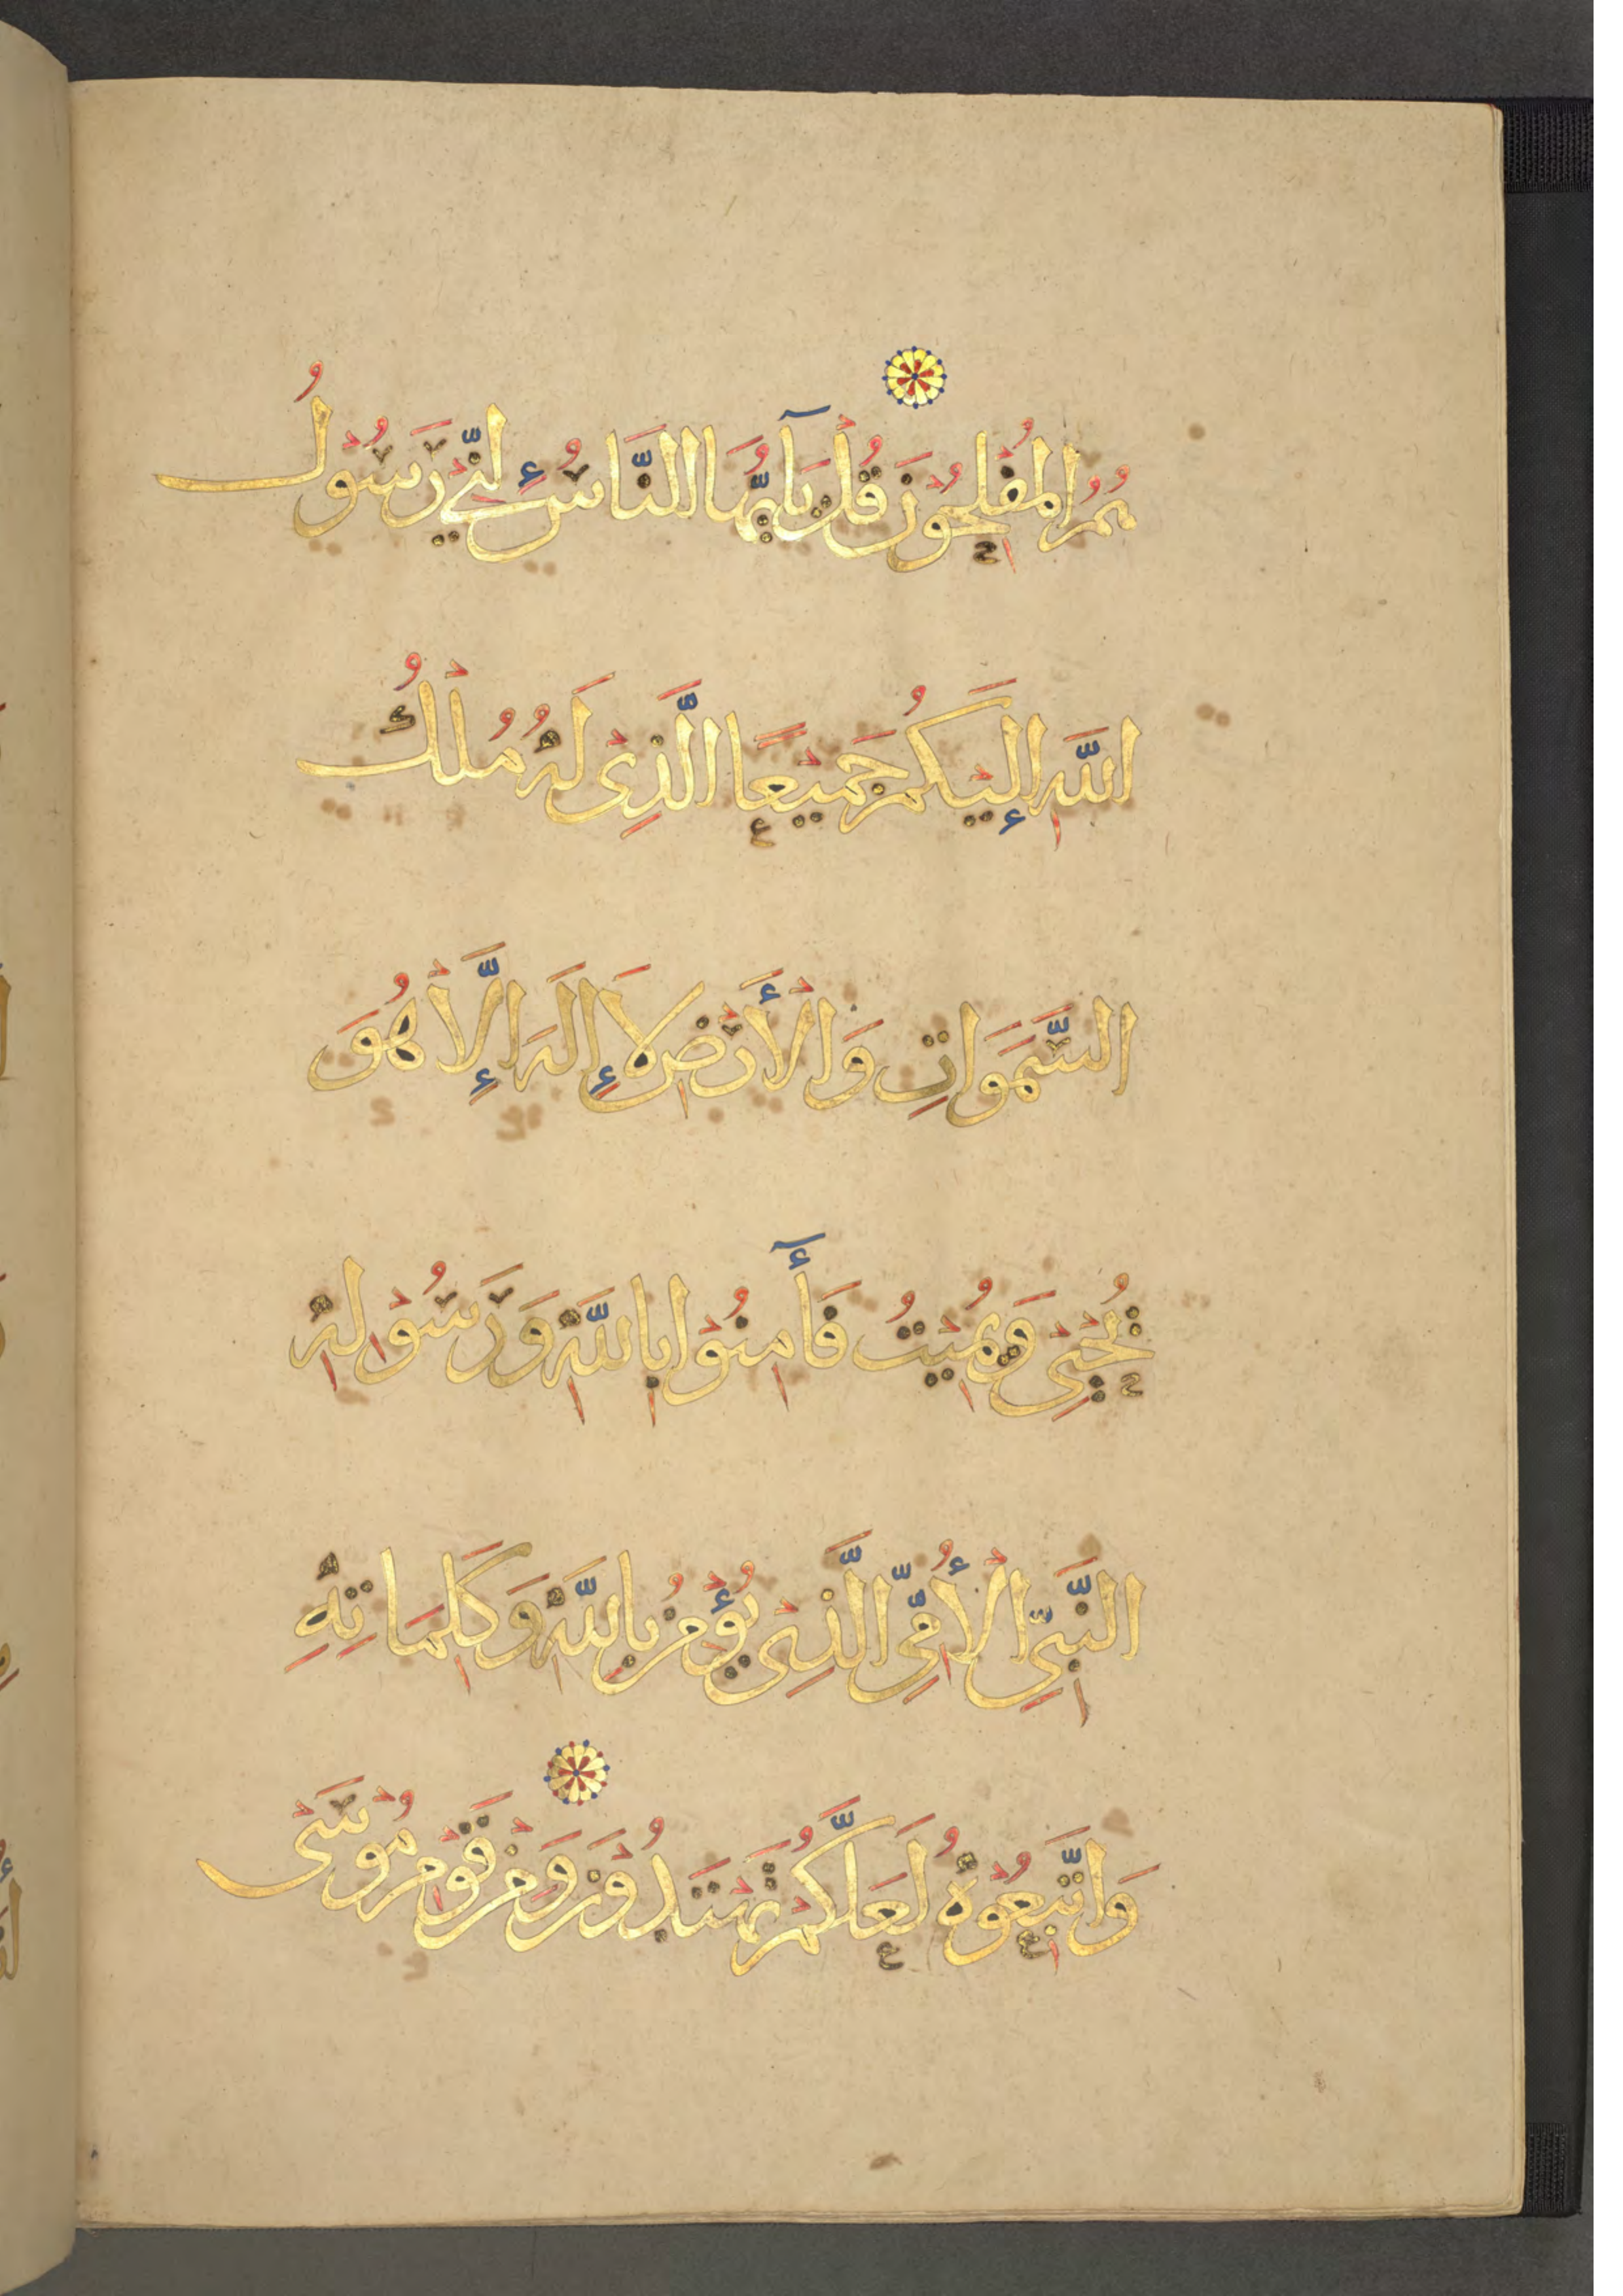 هُمُ الْمُفْلِحُونَ قُلْ يَآ أَيُّهَا النَّاسُ إِنِّي رَسُولُ
اللَّهِ إِلَيْكُمْ جَمِيعًا الَّذِى لَهُ مُلْكُ
السَّمَوَاتِ وَالْأَرْضِ لَا إِلَهَ إِلَّا هُوَ
يُحْيِى وَيُمِيتُ فَأٓمِنُوا بِاللَّهِ وَرَسُولِهِ
النَّبِىِّ الْأُمِّىِّ الَّذِى يُؤْمِنُ بِاللَّهِ وَكَلِمَاتِهِ
وَاتَّبِعُوهُ لَعَلَّكُمْ تَهْتَدُونَ وَمِنْ قَوْمِ مُوسَى